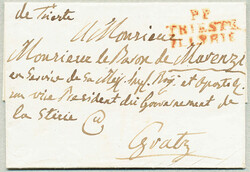 de Trieste
P.P.
TRIESTE
A Monsieur
Monsieur le Baron de Marenzi
en Service de Sa Maj. Imp. Roy. et Apostoliq
son vice President du Gouvernement de
la Stirie
Gratz